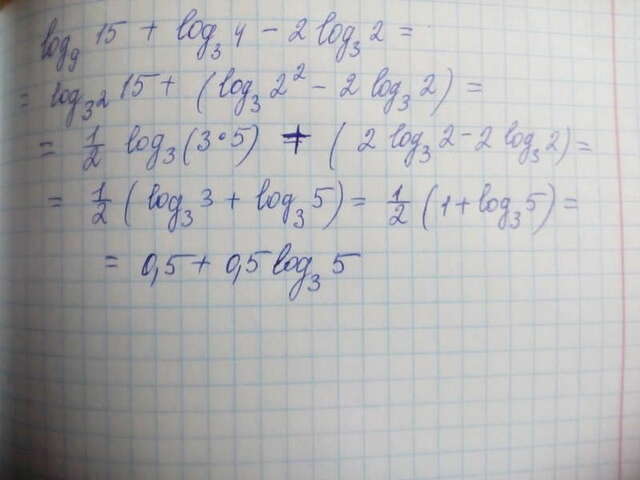 log₉ 15 + log₃ 4 − 2 log₃ 2 =
= log₃² 15 + (log₃ 2² − 2 log₃ 2) =
= 1/2 log₃ (3·5) + (2 log₃ 2 − 2 log₃ 2) =
= 1/2 (log₃ 3 + log₃ 5) = 1/2 (1 + log₃ 5) =
= 0,5 + 0,5 log₃ 5